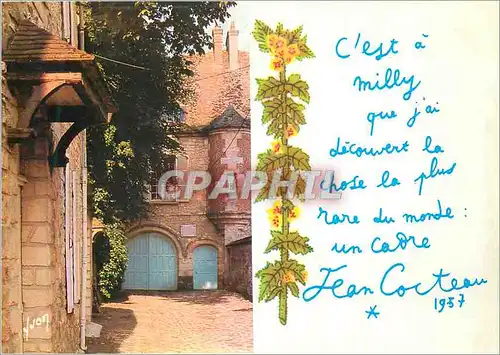 C'est à
milly
que j'ai
découvert la
chose la plus
rare du monde :
un cadre
Jean Cocteau
* 1957
CPAPHIL
yvon